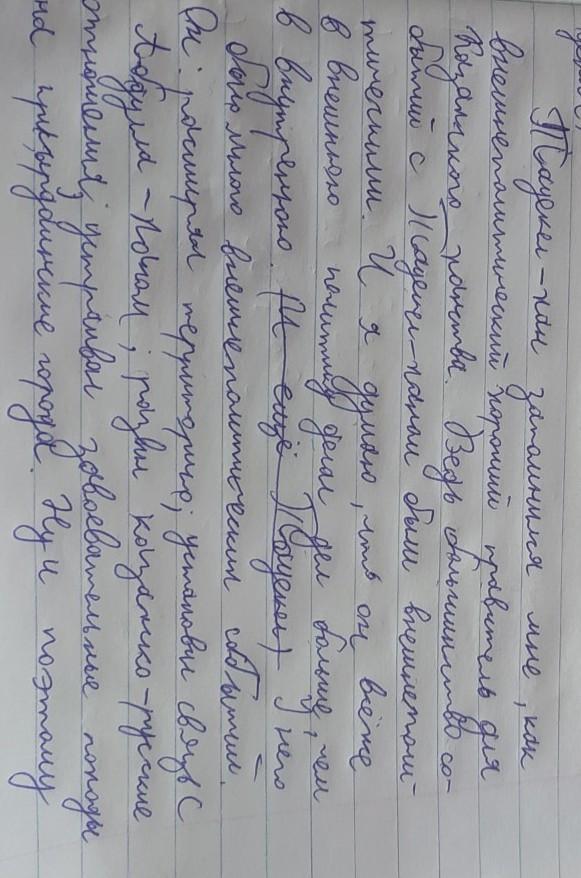 Тауекел-хан запомнился мне, как
внешнеполитический хороший правитель для
Казахского ханства. Ведь большинство со-
бытий с Тауекел-ханом были внешнепои-
тическими. И я думаю, что он всё же
в внешнюю политику делал дел больше, чем
в внутреннюю. (И ещё Тауекел) У него
было много внешнеполитических событий.
Он: расширял территорию; установил связь с
Абдулла-ханом; развил казахско-русские
отношения; устраивал завоевательные походы
на присырдаринские города. Ну и поэтому